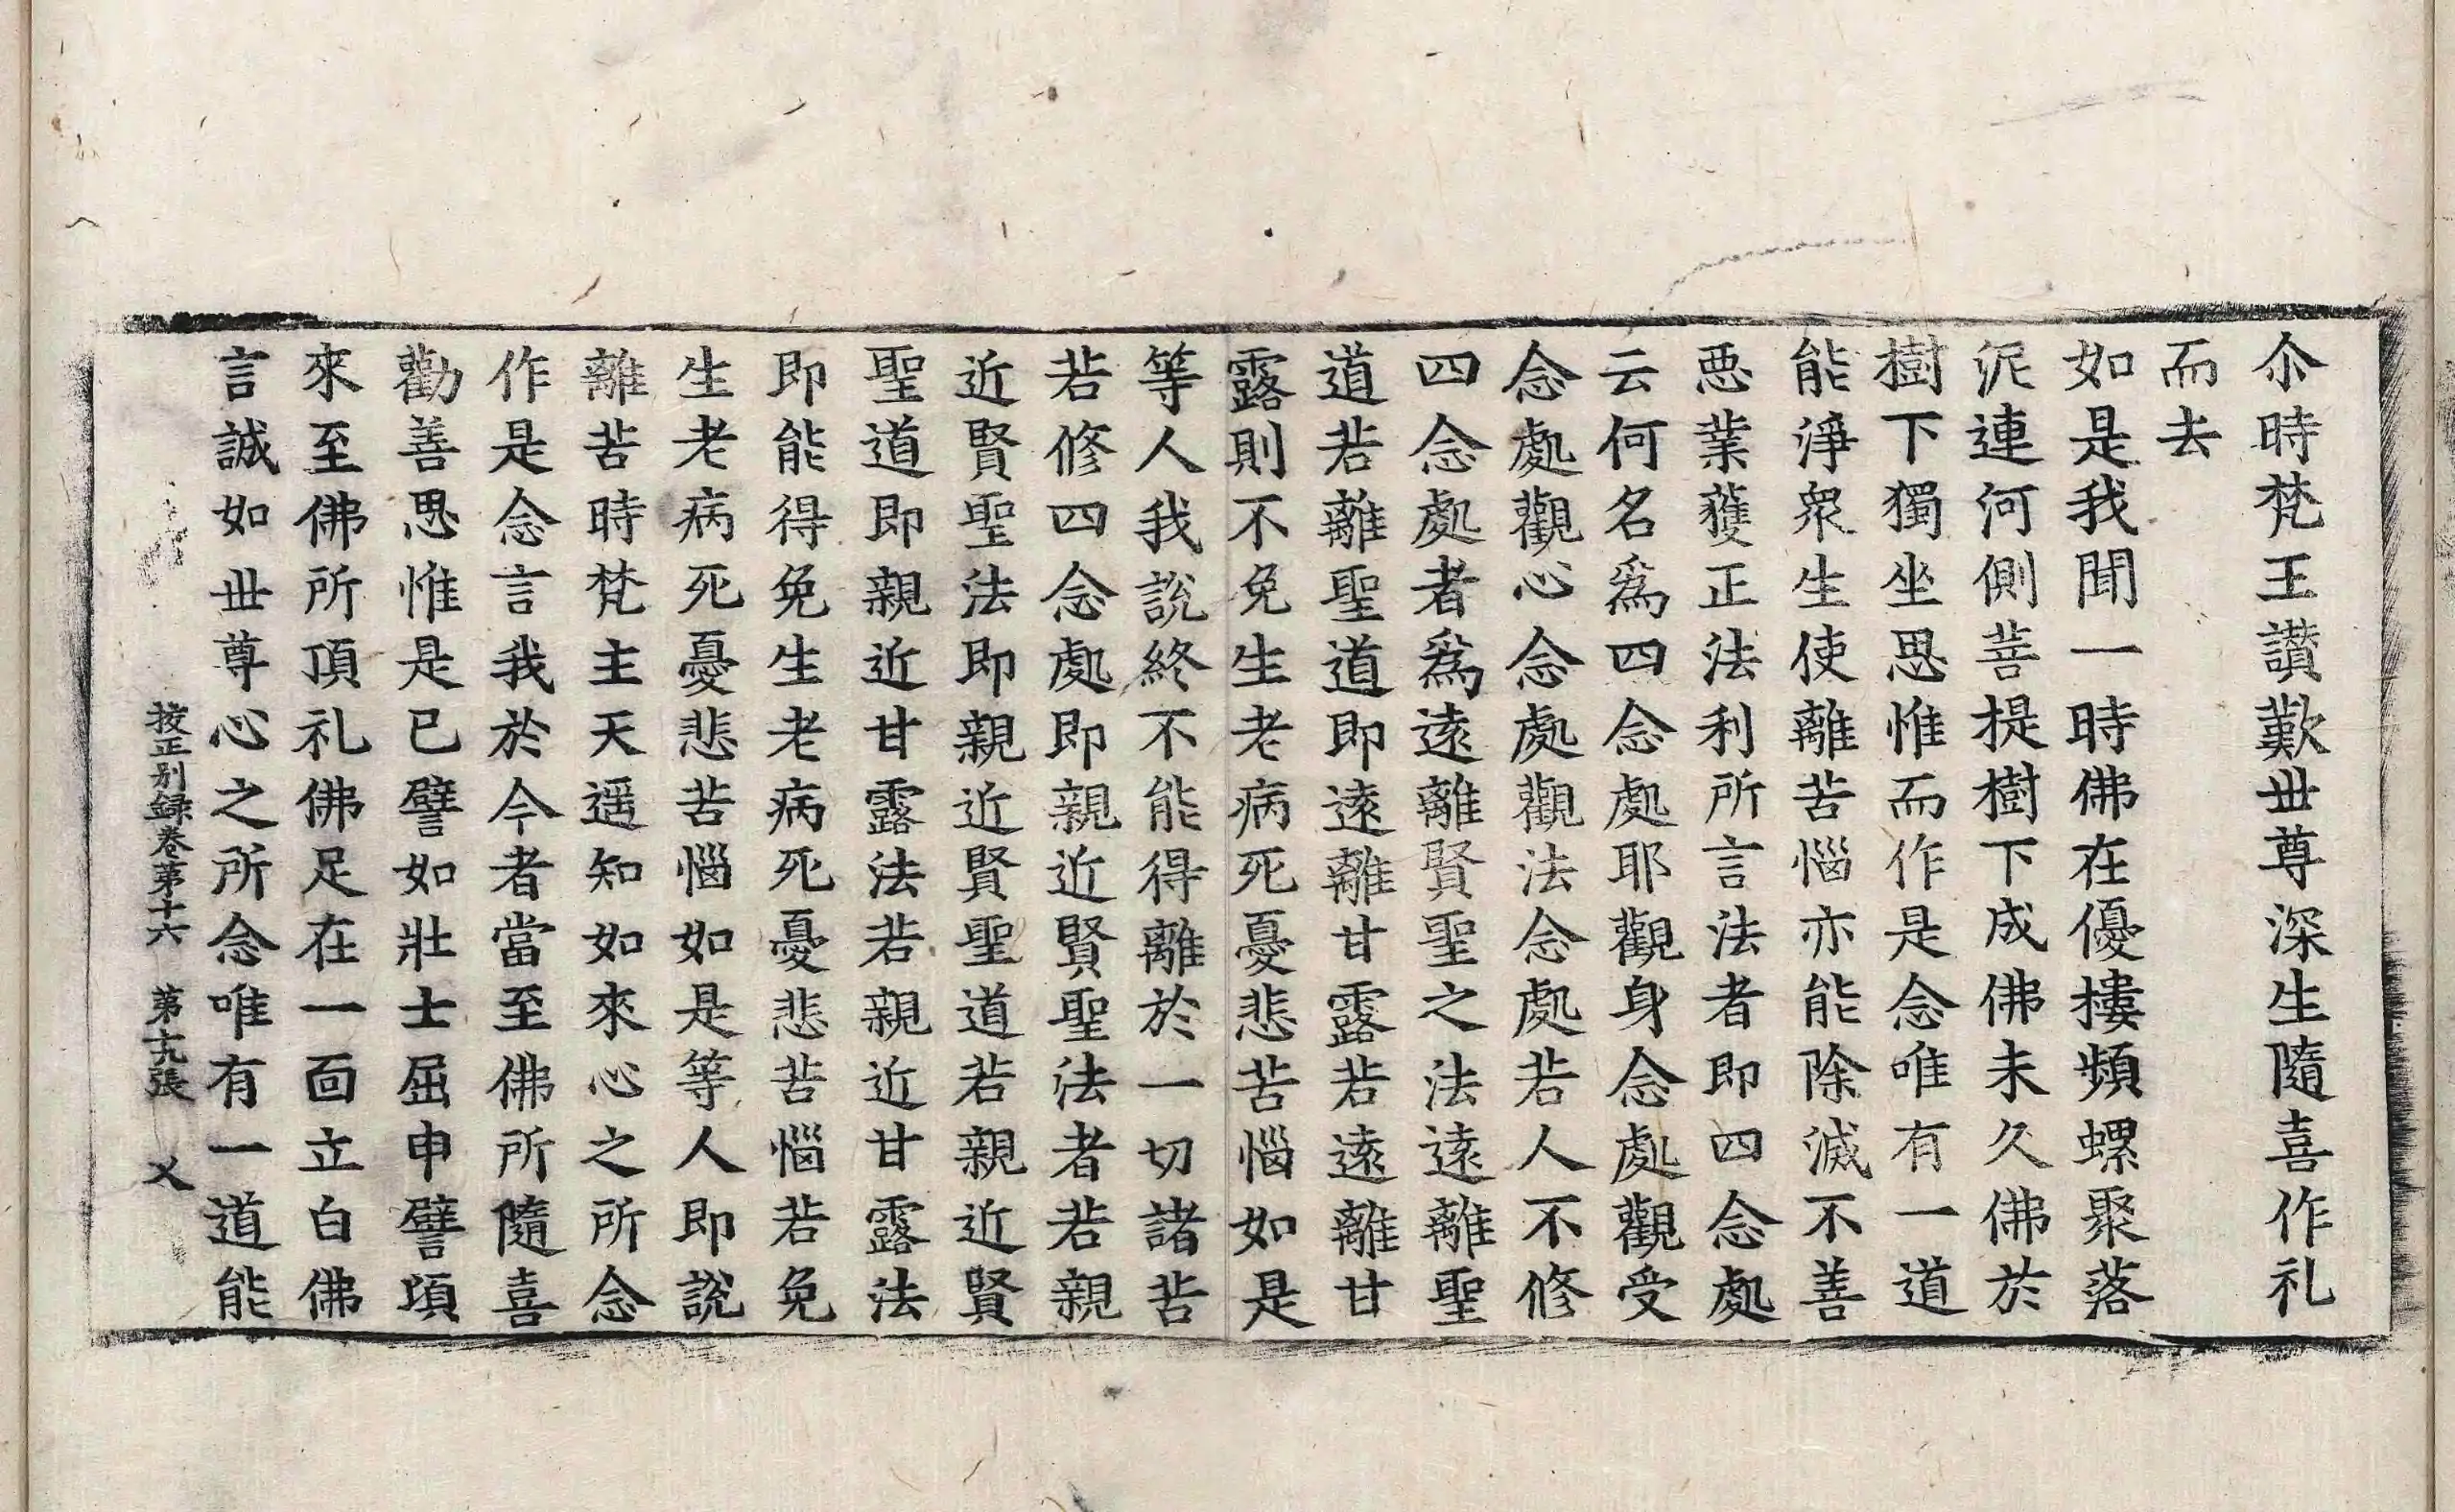 尒時梵王讃歎丗尊深生隨喜作礼
而去
如是我聞一時佛在優摟頻螺聚落
泥連河側菩提樹下成佛未久佛於
樹下獨坐思惟而作是念唯有一道
能淨衆生使離苦惱亦能除滅不善
悪業獲正法利所言法者即四念處
云何名爲四念處耶觀身念處觀受
念處觀心念處觀法念處若人不修
四念處者爲遠離賢聖之法遠離聖
道若離聖道即遠離甘露若遠離甘
露則不免生老病死憂悲苦惱如是
等人我説終不能得離於一切諸苦
若修四念處即親近賢聖法者若親
近賢聖法即親近賢聖道若親近賢
聖道即親近甘露法若親近甘露法
即能得免生老病死憂悲苦惱若免
生老病死憂悲苦惱如是等人即説
離苦時梵主天遥知如來心之所念
作是念言我於今者當至佛所隨喜
勸善思惟是已譬如壯士屈申譬項
來至佛所頂礼佛足在一面立白佛
言誠如丗尊心之所念唯有一道能
挍正別録卷第十六 第十九張 乂